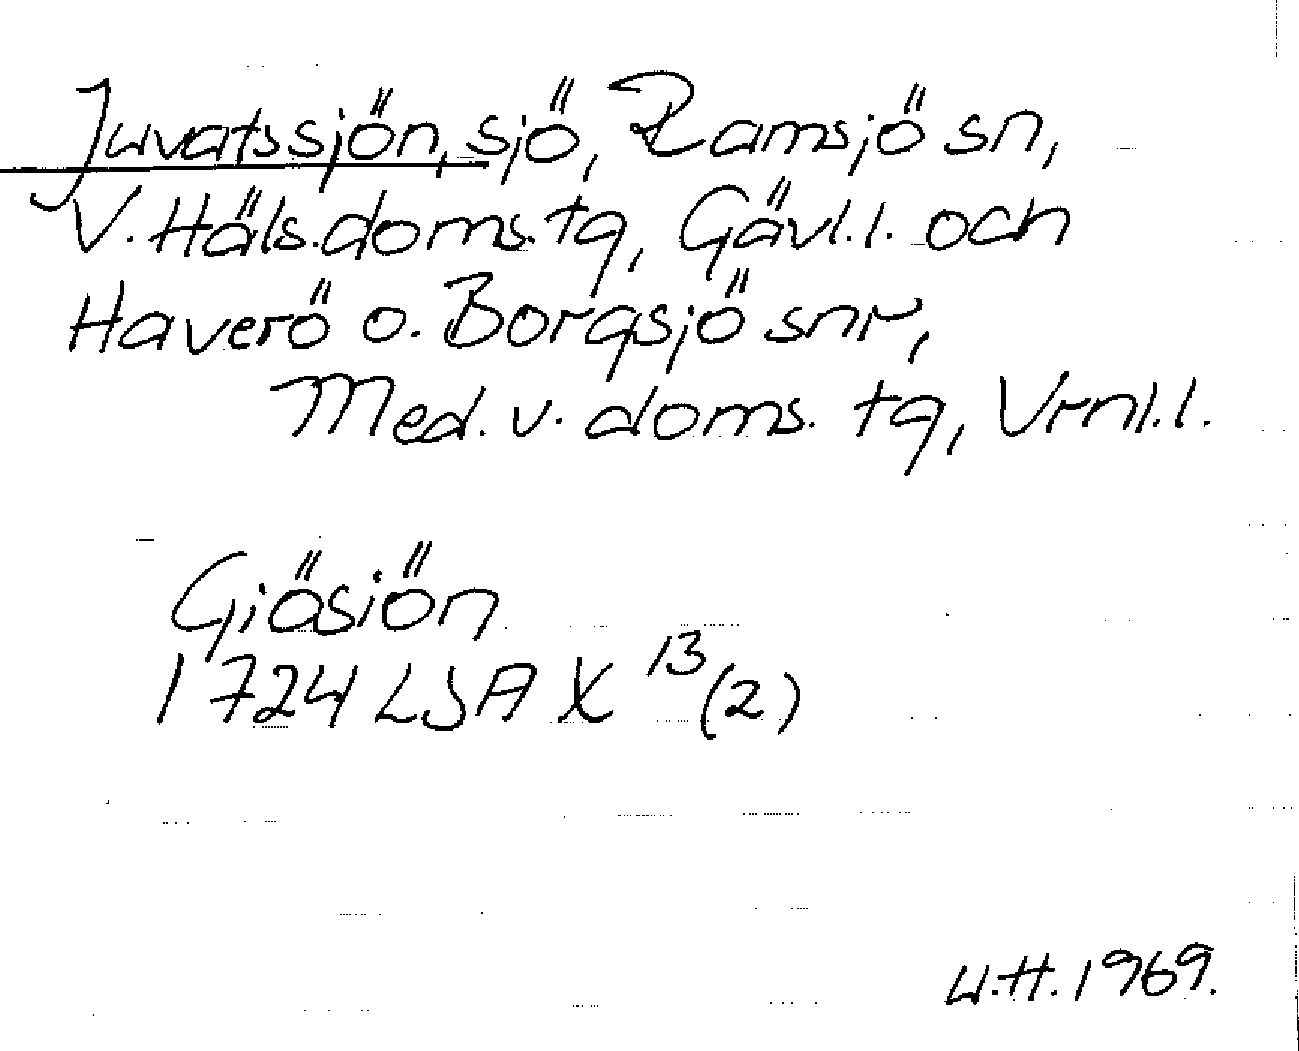 Juvatssjön, sjö, Ramsjö sn,
V. Häls. doms. tg, Gävl. l. och
Haverö o. Borgsjö snr,
Med. v. doms. tg, Vrnl. l.
Giösiön
1724 LSA X 13 (2)
U.H. 1969.